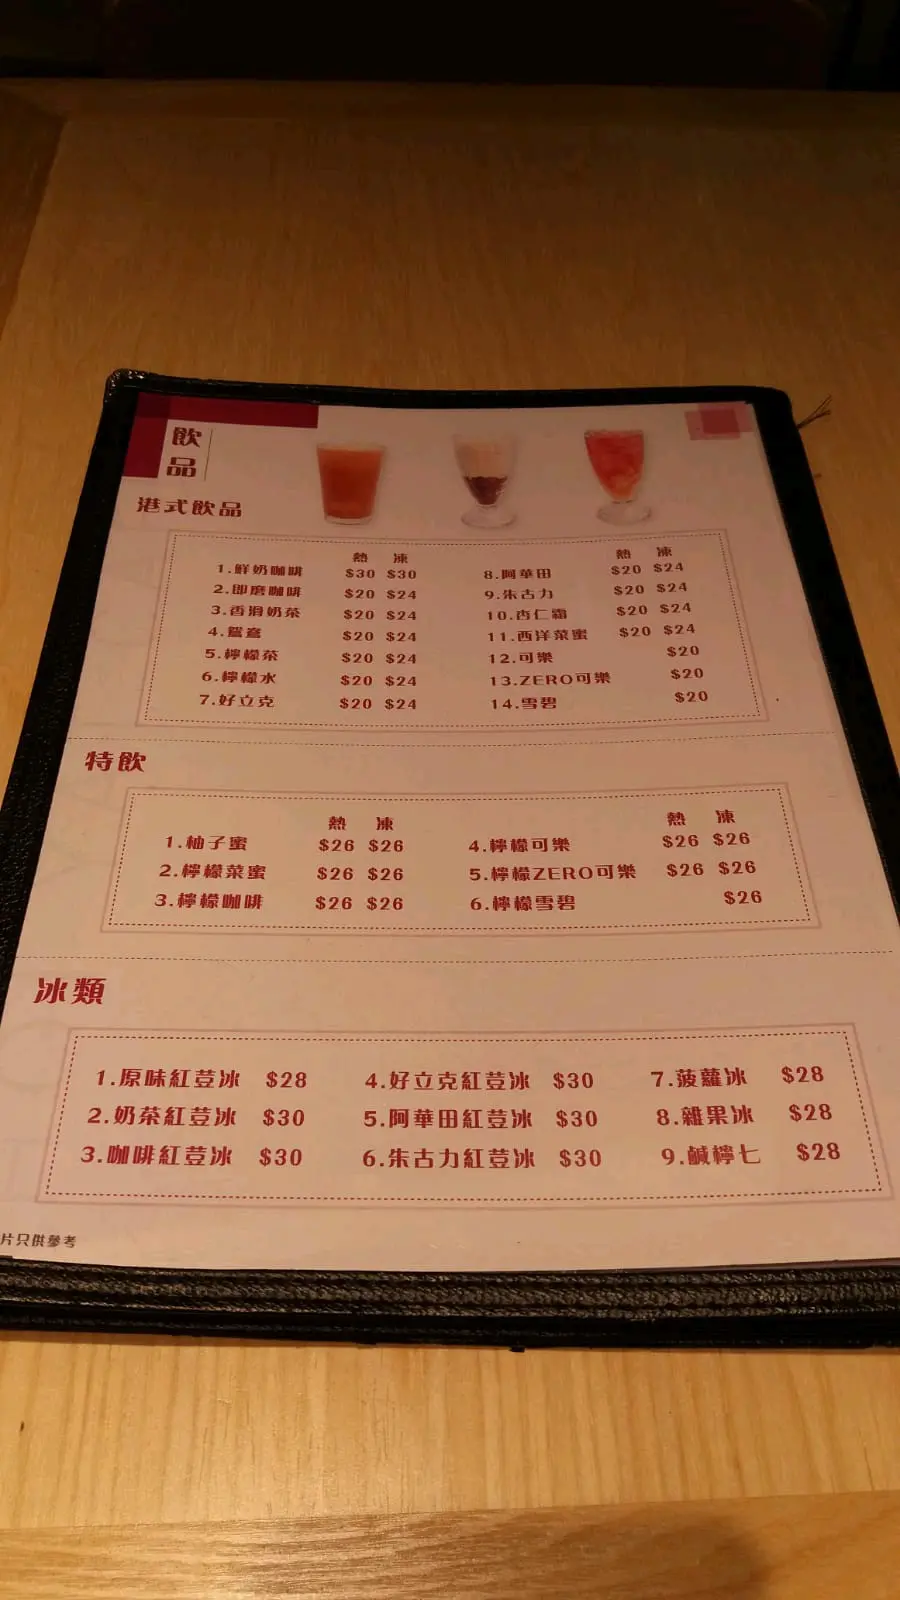 飲
品
港式飲品
熱 凍
1.鮮奶咖啡 $30 $30
2.即磨咖啡 $20 $24
3.香滑奶茶 $20 $24
4.鴛鴦 $20 $24
5.檸檬茶 $20 $24
6.檸檬水 $20 $24
7.好立克 $20 $24
熱 凍
8.阿華田 $20 $24
9.朱古力 $20 $24
10.杏仁霜 $20 $24
11.西洋菜蜜 $20 $24
12.可樂 $20
13.ZERO可樂 $20
14.雪碧 $20
特飲
熱 凍
1.柚子蜜 $26 $26
2.檸檬菜蜜 $26 $26
3.檸檬咖啡 $26 $26
熱 凍
4.檸檬可樂 $26 $26
5.檸檬ZERO可樂 $26 $26
6.檸檬雪碧 $26
冰類
1.原味紅荳冰 $28
2.奶茶紅荳冰 $30
3.咖啡紅荳冰 $30
4.好立克紅荳冰 $30
5.阿華田紅荳冰 $30
6.朱古力紅荳冰 $30
7.菠蘿冰 $28
8.雜果冰 $28
9.鹹檸七 $28
片只供參考